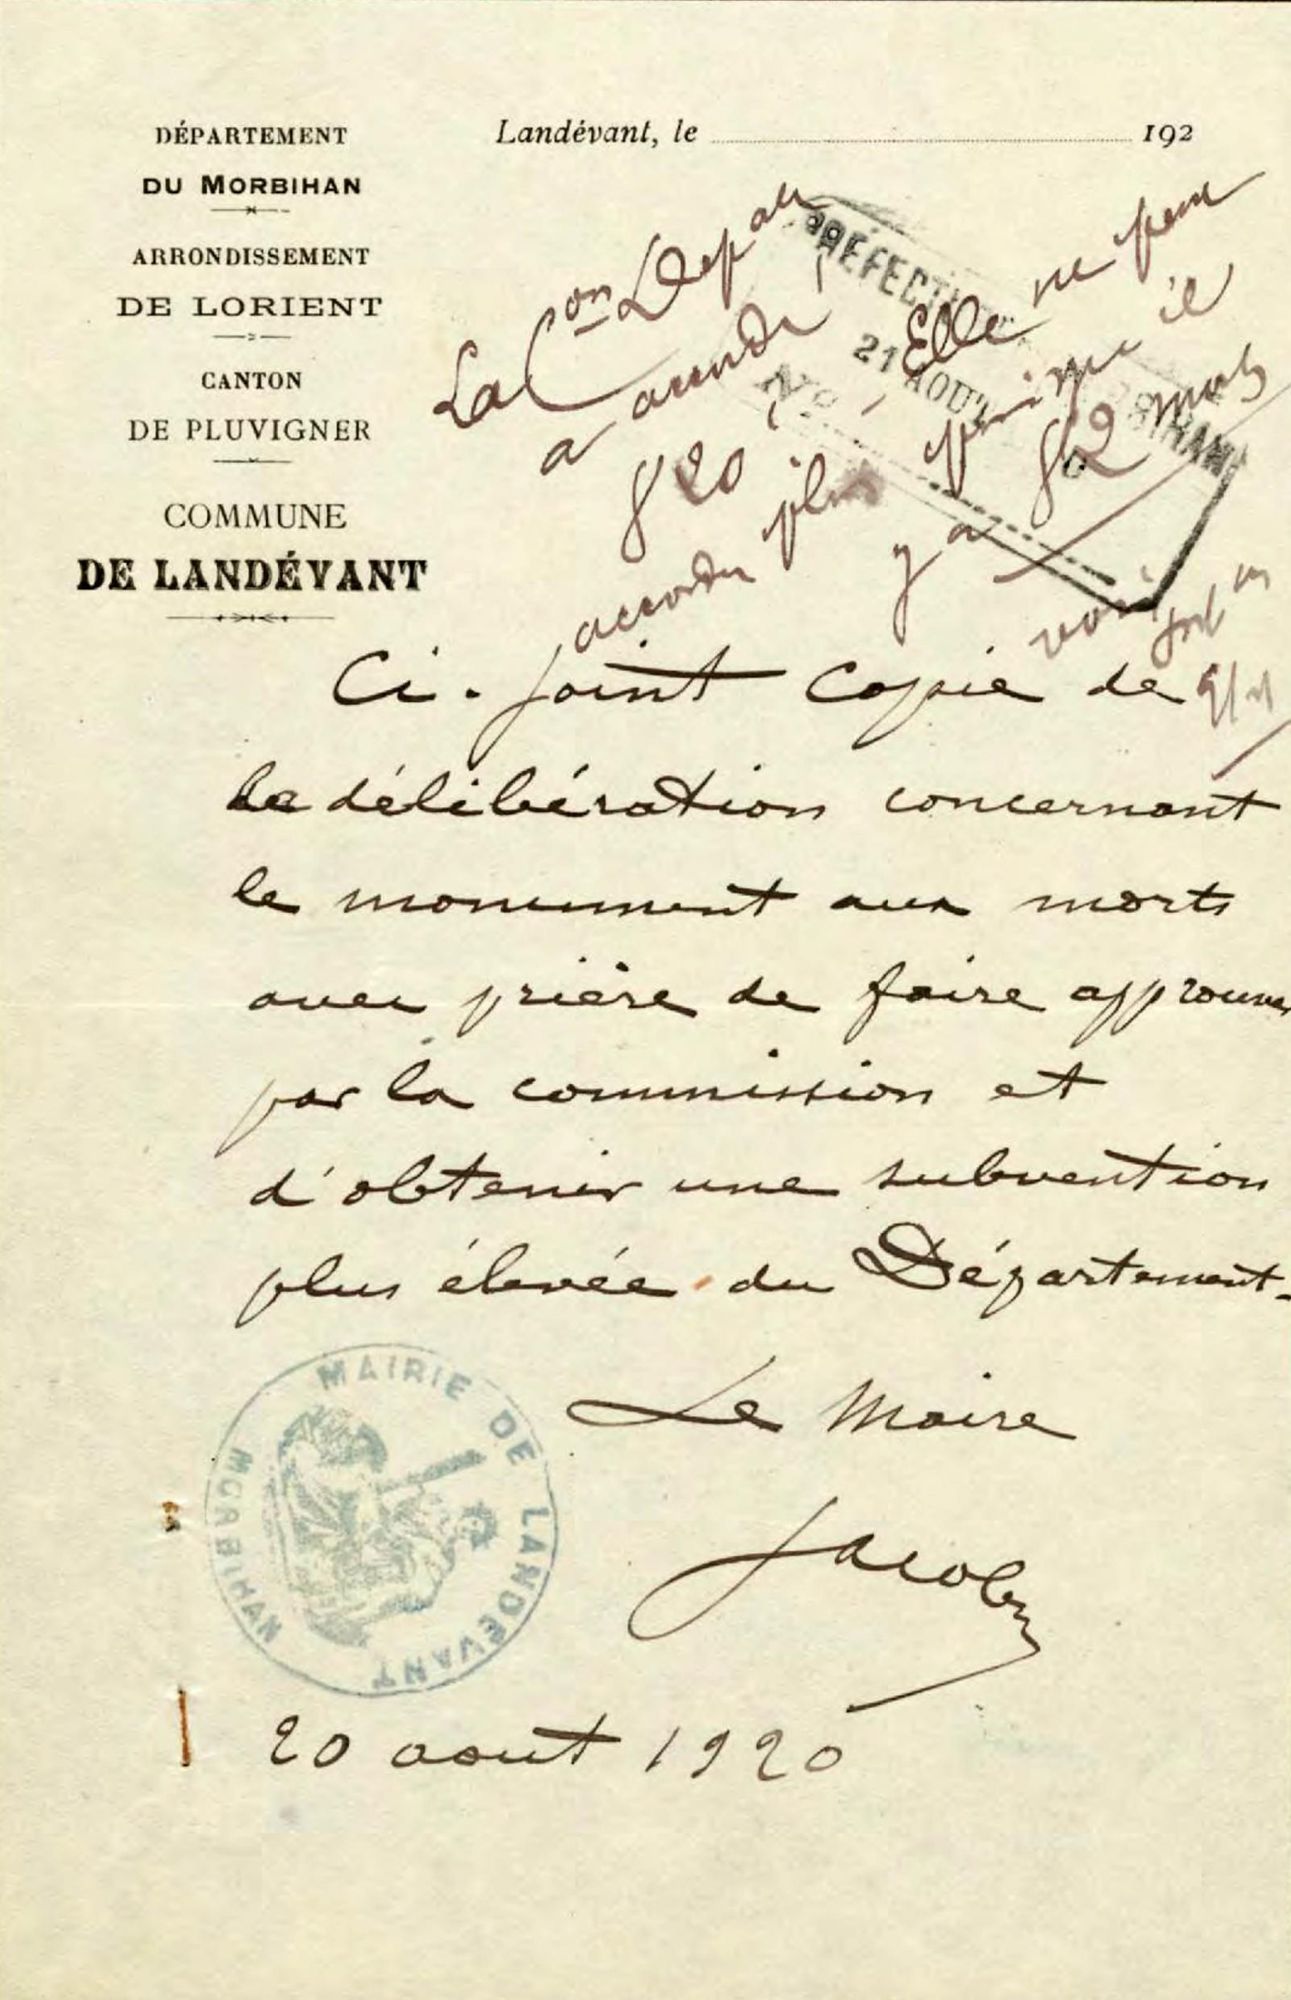 DÉPARTEMENT
DU MORBIHAN
ARRONDISSEMENT
DE LORIENT
CANTON
DE PLUVIGNER
COMMUNE
DE LANDÉVANT
Landévant, le 192
PRÉFECTURE
21 AOUT
MORBIHAN
No
La Con Depale
a accordé
820f. Elle ne peut
accorder plus
il y a 82 morts
voir
Ci-joint copie de
la délibération concernant
le monument aux morts
avec prière de faire approuver
par la commission et
d'obtenir une subvention
plus élevée du Département.
Le Maire
Jacob
MAIRIE DE LANDÉVANT
MORBIHAN
20 aout 1920